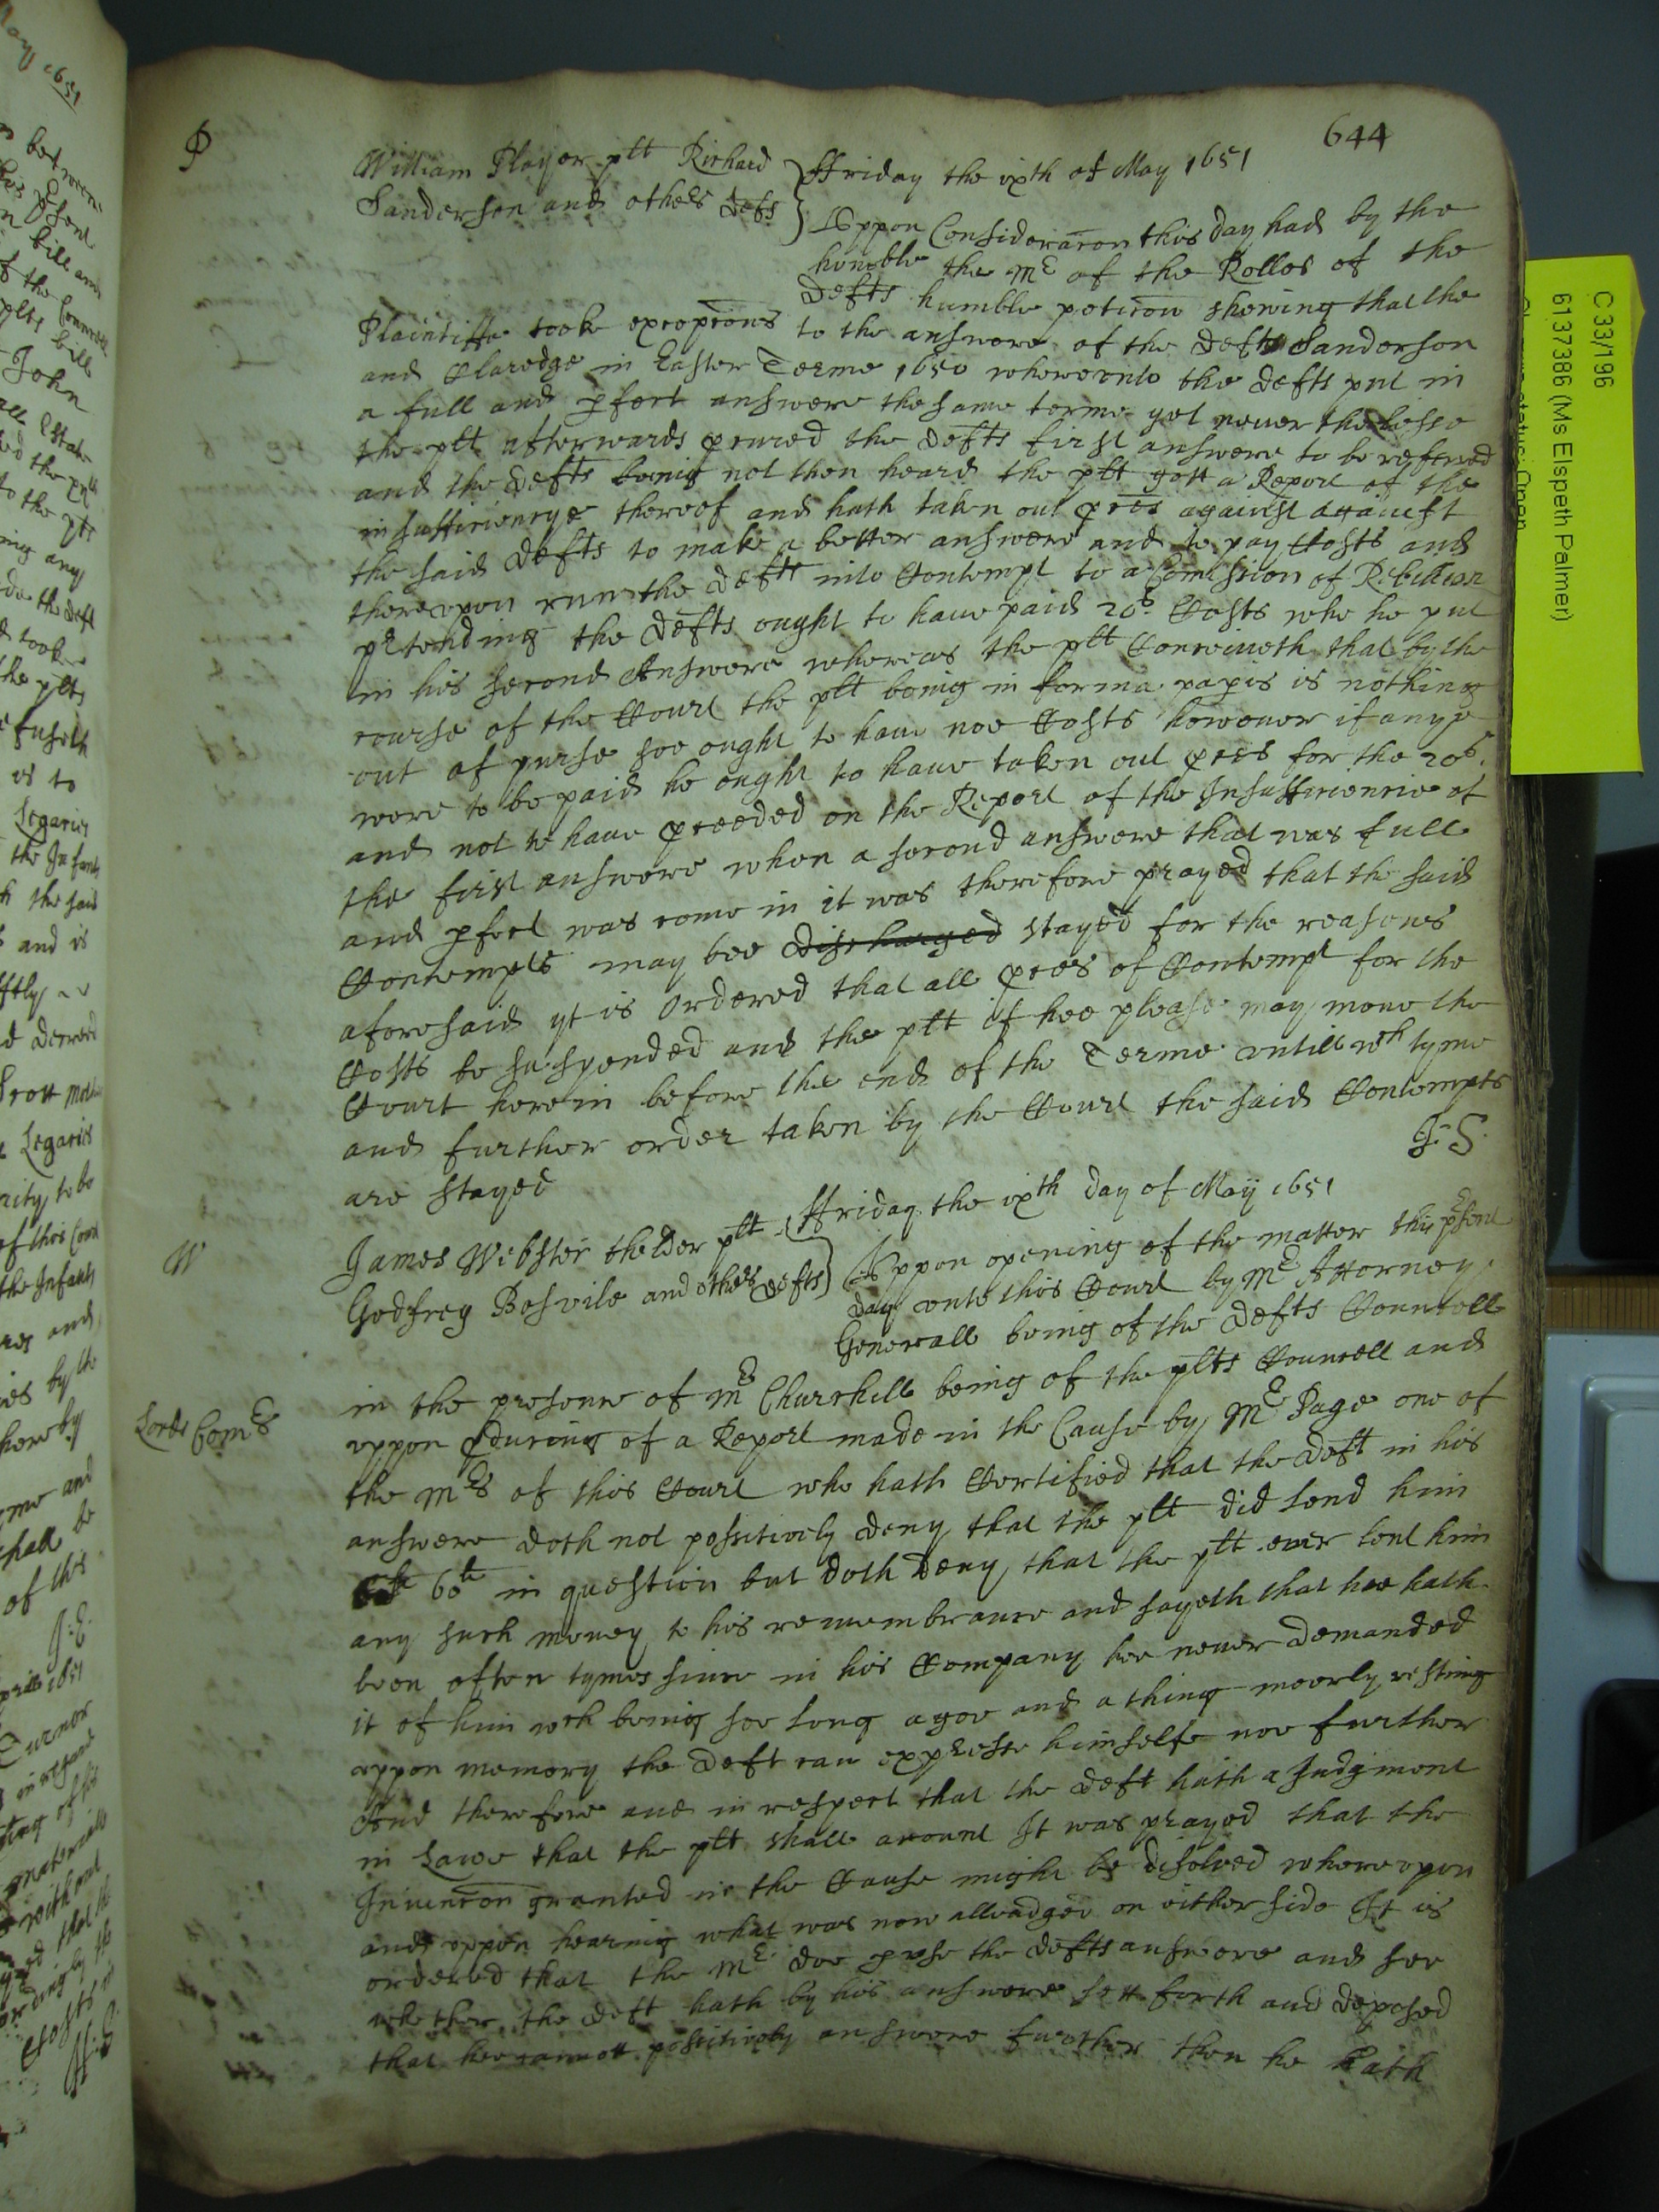 644
P
William Player plt Richard
Sanderson and others Defts
Ffriday the ixth of May 1651
Uppon Consideracon this day had by the
honoble the Mr of the Rolles of the
Defts humble peticon shewing that the
Plaintiffe tooke excepcons to the answere of the Defts Sanderson
and Claredge in Easter Terme 1650 whereunto the Defts put in
a full and pfect answere the same terme yet never thelesse
the plt afterwards pcured the Defts first answere to be referred
and the Defts being not then heard the plt gott a Report of the
insufficiencye thereof and hath taken out pces against against
the said Defts to make a better answere and to pay Costs and
thereupon runn the Deft into Contempt to a Comission of Rebellion
prtending the Defts ought to have paid 20s Costs whe he put
in his second Answere whereas the plt Conceiveth that by the
course of the Court the plt being in forma papis is nothing
out of purse soe ought to have noe Costs however if anye
were to be paid he ought to have taken out pces for the 20s.
and not to have pceeded on the Report of the Insufficiencie of
the first answere when a second answere that was full
and pfect was come in it was therefore prayed that the said
Contempts may bee discharged stayed for the reasons
aforesaid yt is Ordered that all pces of Contempt for the
Costs be suspended and the plt if hee please may move the
Court herein before the end of the Terme untill wch tyme
and further order taken by the Court the said Contempts
are stayed
J: S:
W
James Webster thelder plt
Godfrey Bosvile and others Defts
Ffriday the ixth day of May 1651
Uppon opening of the matter this prsent
day unto this Court by Mr Attorney
Generall being of the Defts Councell
Lords Comrs
in the presence of Mr Churchill being of the plts Councell and
uppon pduring of a Report made in the Cause by Mr Page one of
the Mrs of this Court who hath Certified that the Deft in his
answere doth not possitively deny that the plt did lend him
60li in question but doth Deny that the plt ever lent him
any such money to his remembrance and sayeth that hee hath
been often tymes since in his Company hee never demanded
it of him wch being soe long agoe and a thing meerly resting
uppon memory the Deft can expresse himselfe noe further
And therefore and in respect that the Deft hath a Judgment
in Lawe that the plt shall account It was prayed that the
Iniuncon granted in the Cause might be disolved whereupon
and uppon hearing what was now alleadged on either side It is
ordered that the Mr doe pvse the Defts answere and see
whether the Deft hath by his answere sett forth and deposed
that hee cannott possitively answere further then he hath
C 33/196
6137386 (Ms Elspeth Palmer)